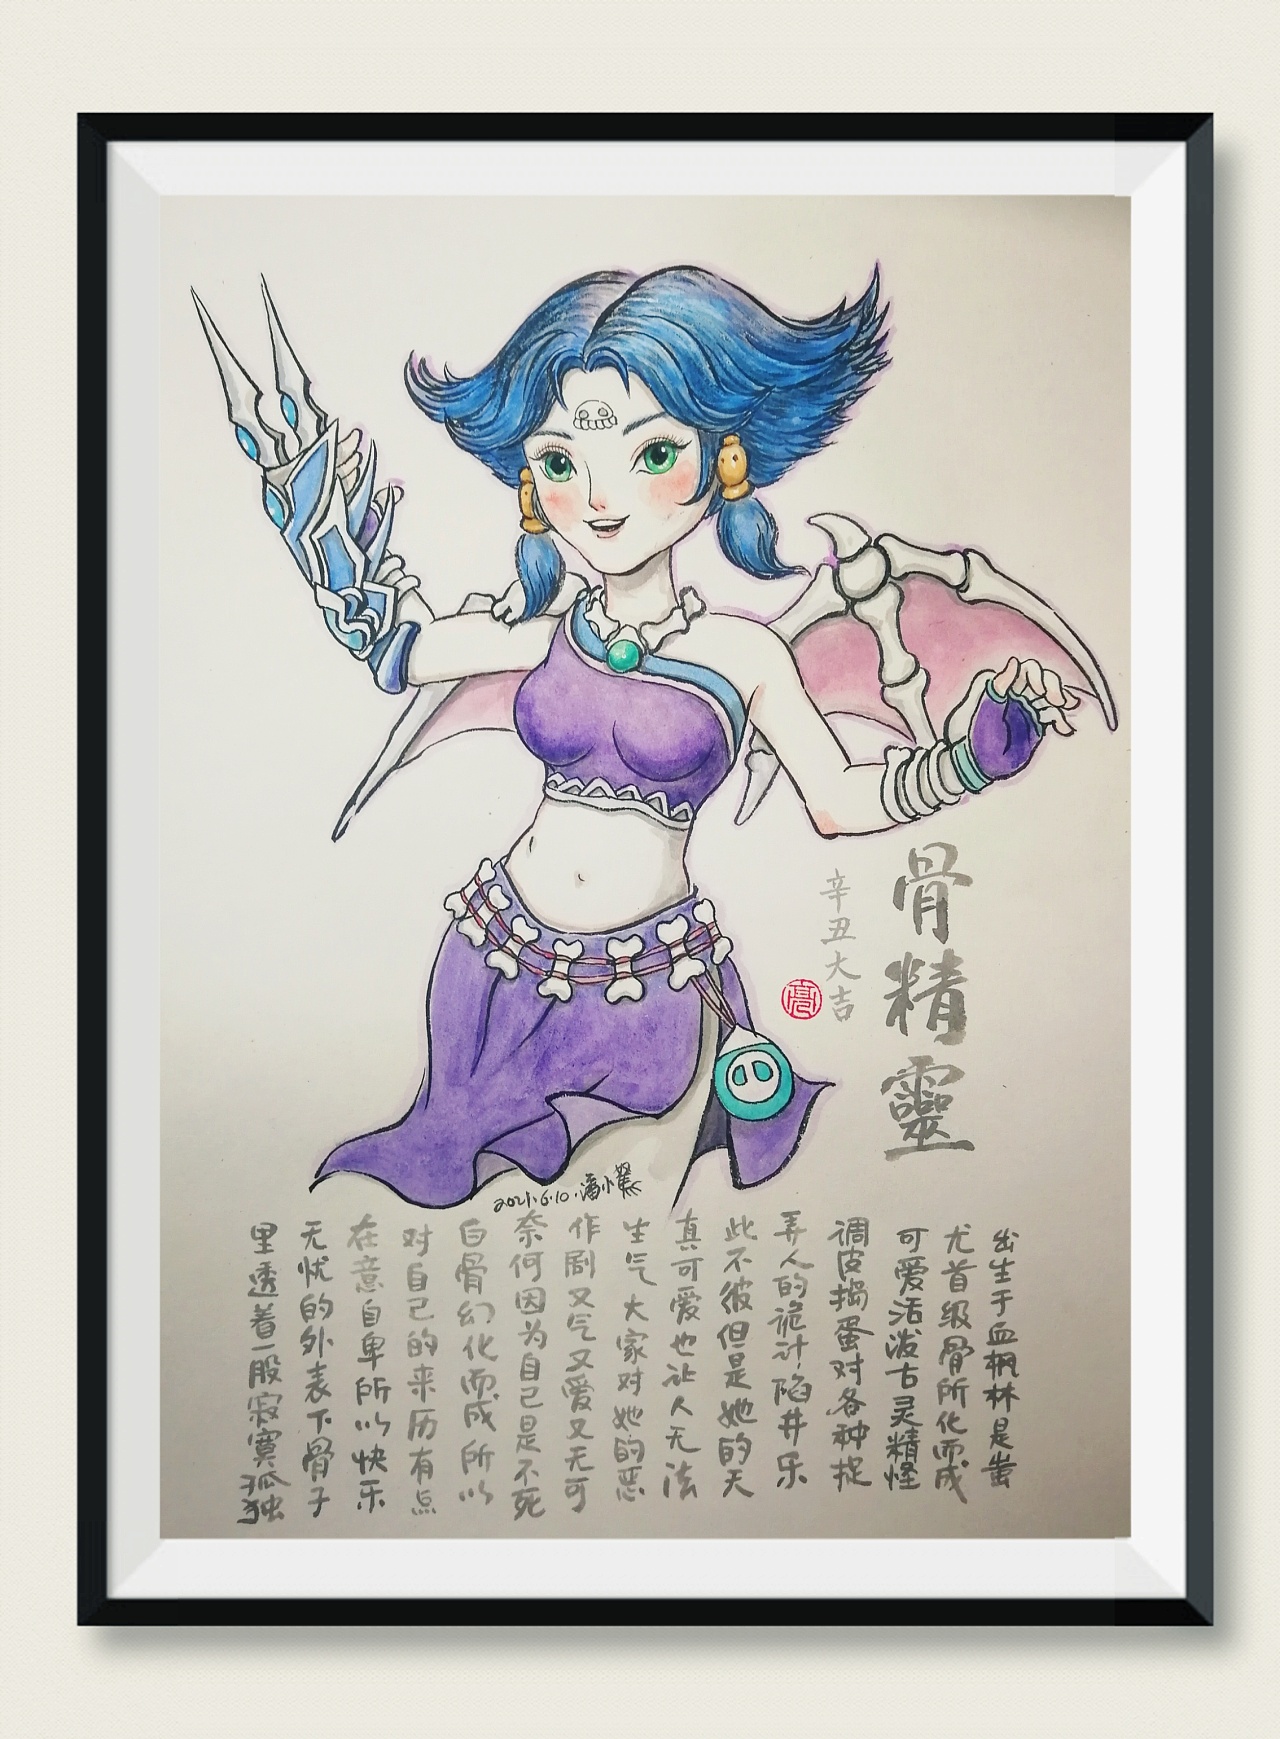 骨精靈
辛丑大吉
亮
2021.6.10.潘小
出生于血枫林是蚩
尤首级骨所化而成
可爱活泼古灵精怪
调皮捣蛋对各种捉
弄人的诡计陷井乐
此不彼但是她的天
真可爱也让人无法
生气大家对她的恶
作剧又气又爱又无可
奈何因为自己是不死
白骨幻化而成所以
对自己的来历有点
在意自卑所以快乐
无忧的外表下骨子
里透着一股寂寞孤独